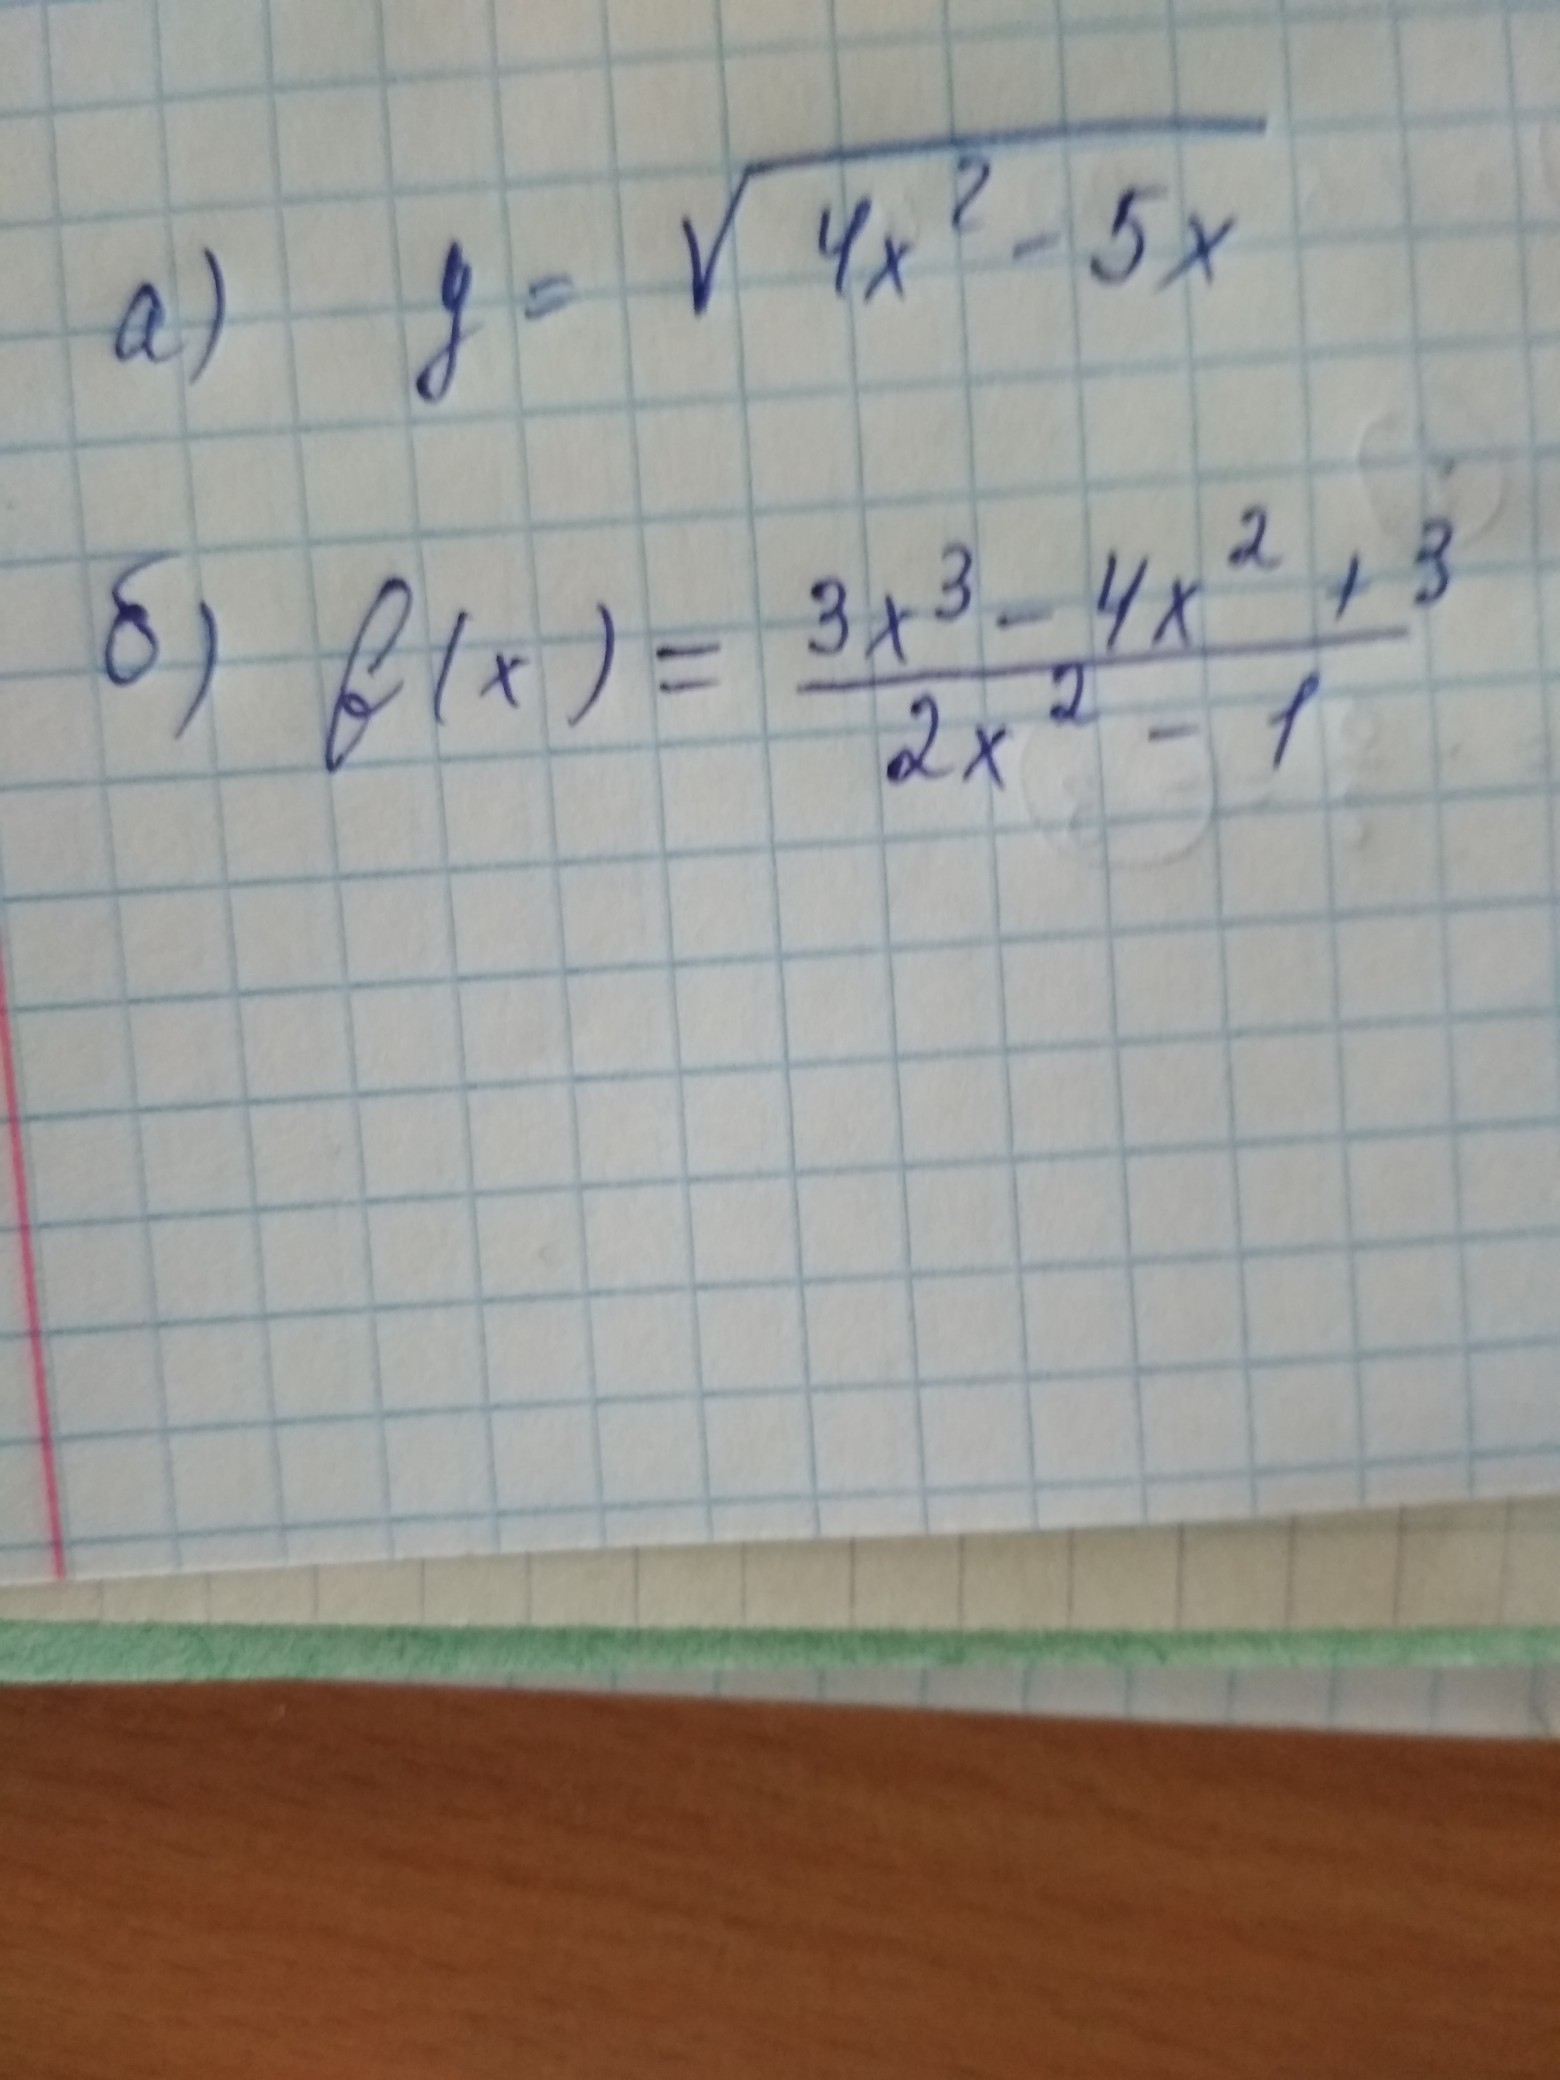 а) y = √(4x² - 5x)
б) f(x) = (3x³ - 4x² + 3)/(2x² - 1)